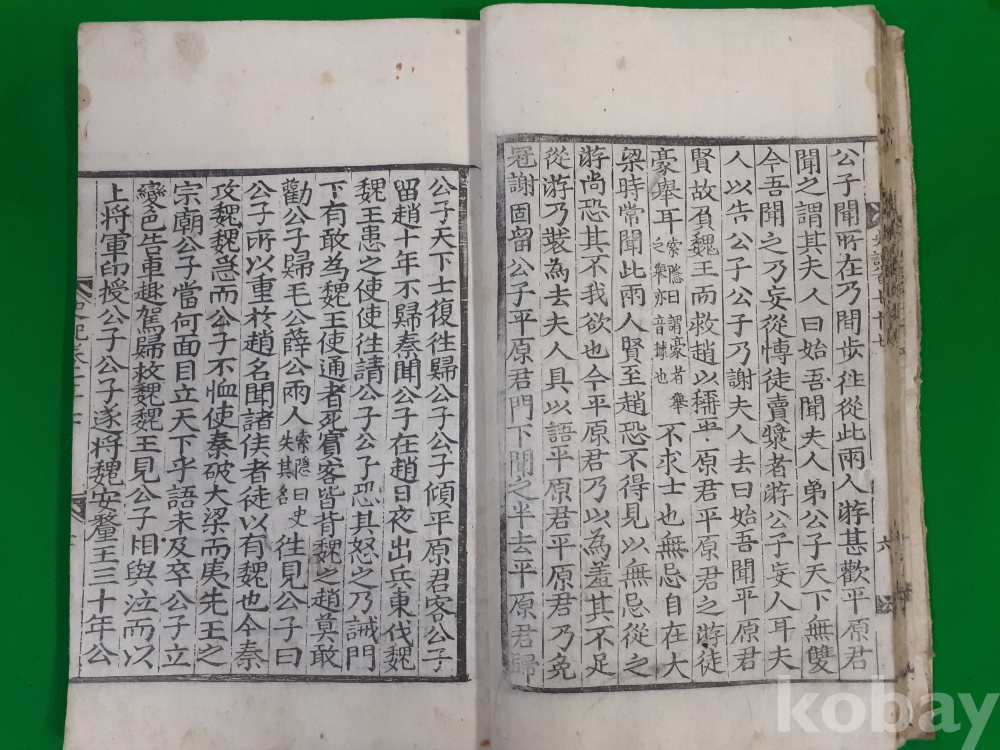 公子聞所在乃間步往從此兩人游甚歡平原君
聞之謂其夫人曰始吾聞夫人弟公子天下無雙
今吾聞之乃妄從博徒賣漿者游公子妄人耳夫
人以告公子公子乃謝夫人去曰始吾聞平原君
賢故負魏王而救趙以稱平原君平原君之游徒
豪舉耳索隱曰謂豪者舉之舉亦音據也不求士也無忌自在大
梁時常聞此兩人賢至趙恐不得見以無忌從之
游尚恐其不我欲也今平原君乃以為羞其不足
從游乃裝為去夫人具以語平原君平原君乃免
冠謝固留公子平原君門下聞之半去平原君歸
公子天下士復徃歸公子公子傾平原君客公子
留趙十年不歸秦聞公子在趙日夜出兵東伐魏
魏王患之使使徃請公子公子恐其怒之乃誡門
下有敢為魏王使通者死賓客皆背魏之趙莫敢
勸公子歸毛公薛公兩人索隱曰史失其名徃見公子曰
公子所以重於趙名聞諸侯者徒以有魏也今秦
攻魏魏急而公子不恤使秦破大梁而夷先王之
宗廟公子當何面目立天下乎語未及卒公子立
變色告車趣駕歸救魏魏王見公子相與泣而以
上將軍印授公子公子遂將魏安釐王三十年公
六
kobay